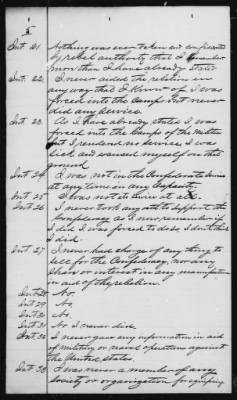 5
Int. 21 Nothing was ever taken and confiscated
by rebel authority that I remember
more than I have already stated
Int. 22 I never aided the rebellion in
any way that I know of I was
forced into the Camps but never
did any service.
Int. 23 As I have already stated I was
forced into the Camps of the Militia
but I rendered no service. I was
sick and excused myself on that
ground
Int. 24 I was not in the Confederate service
at any time or any Capacity
Int. 25 I was not at any time at all.
Int. 26 I never took any oath to support the
Confederacy as I now remember if
I did I was forced to do so. I don't think
I did.
Int. 27 I never had charge of any thing to
sell for the Confederacy, nor any
share or interest in any
in aid of the rebellion.
Int. 28 No.
Int. 29 No.
Int. 30 No.
Int. 31 No I never did.
Int. 32 I never gave any information in aid
of military or naval operations against
the United States.
Int. 33 I was never a member of any
society or organization for